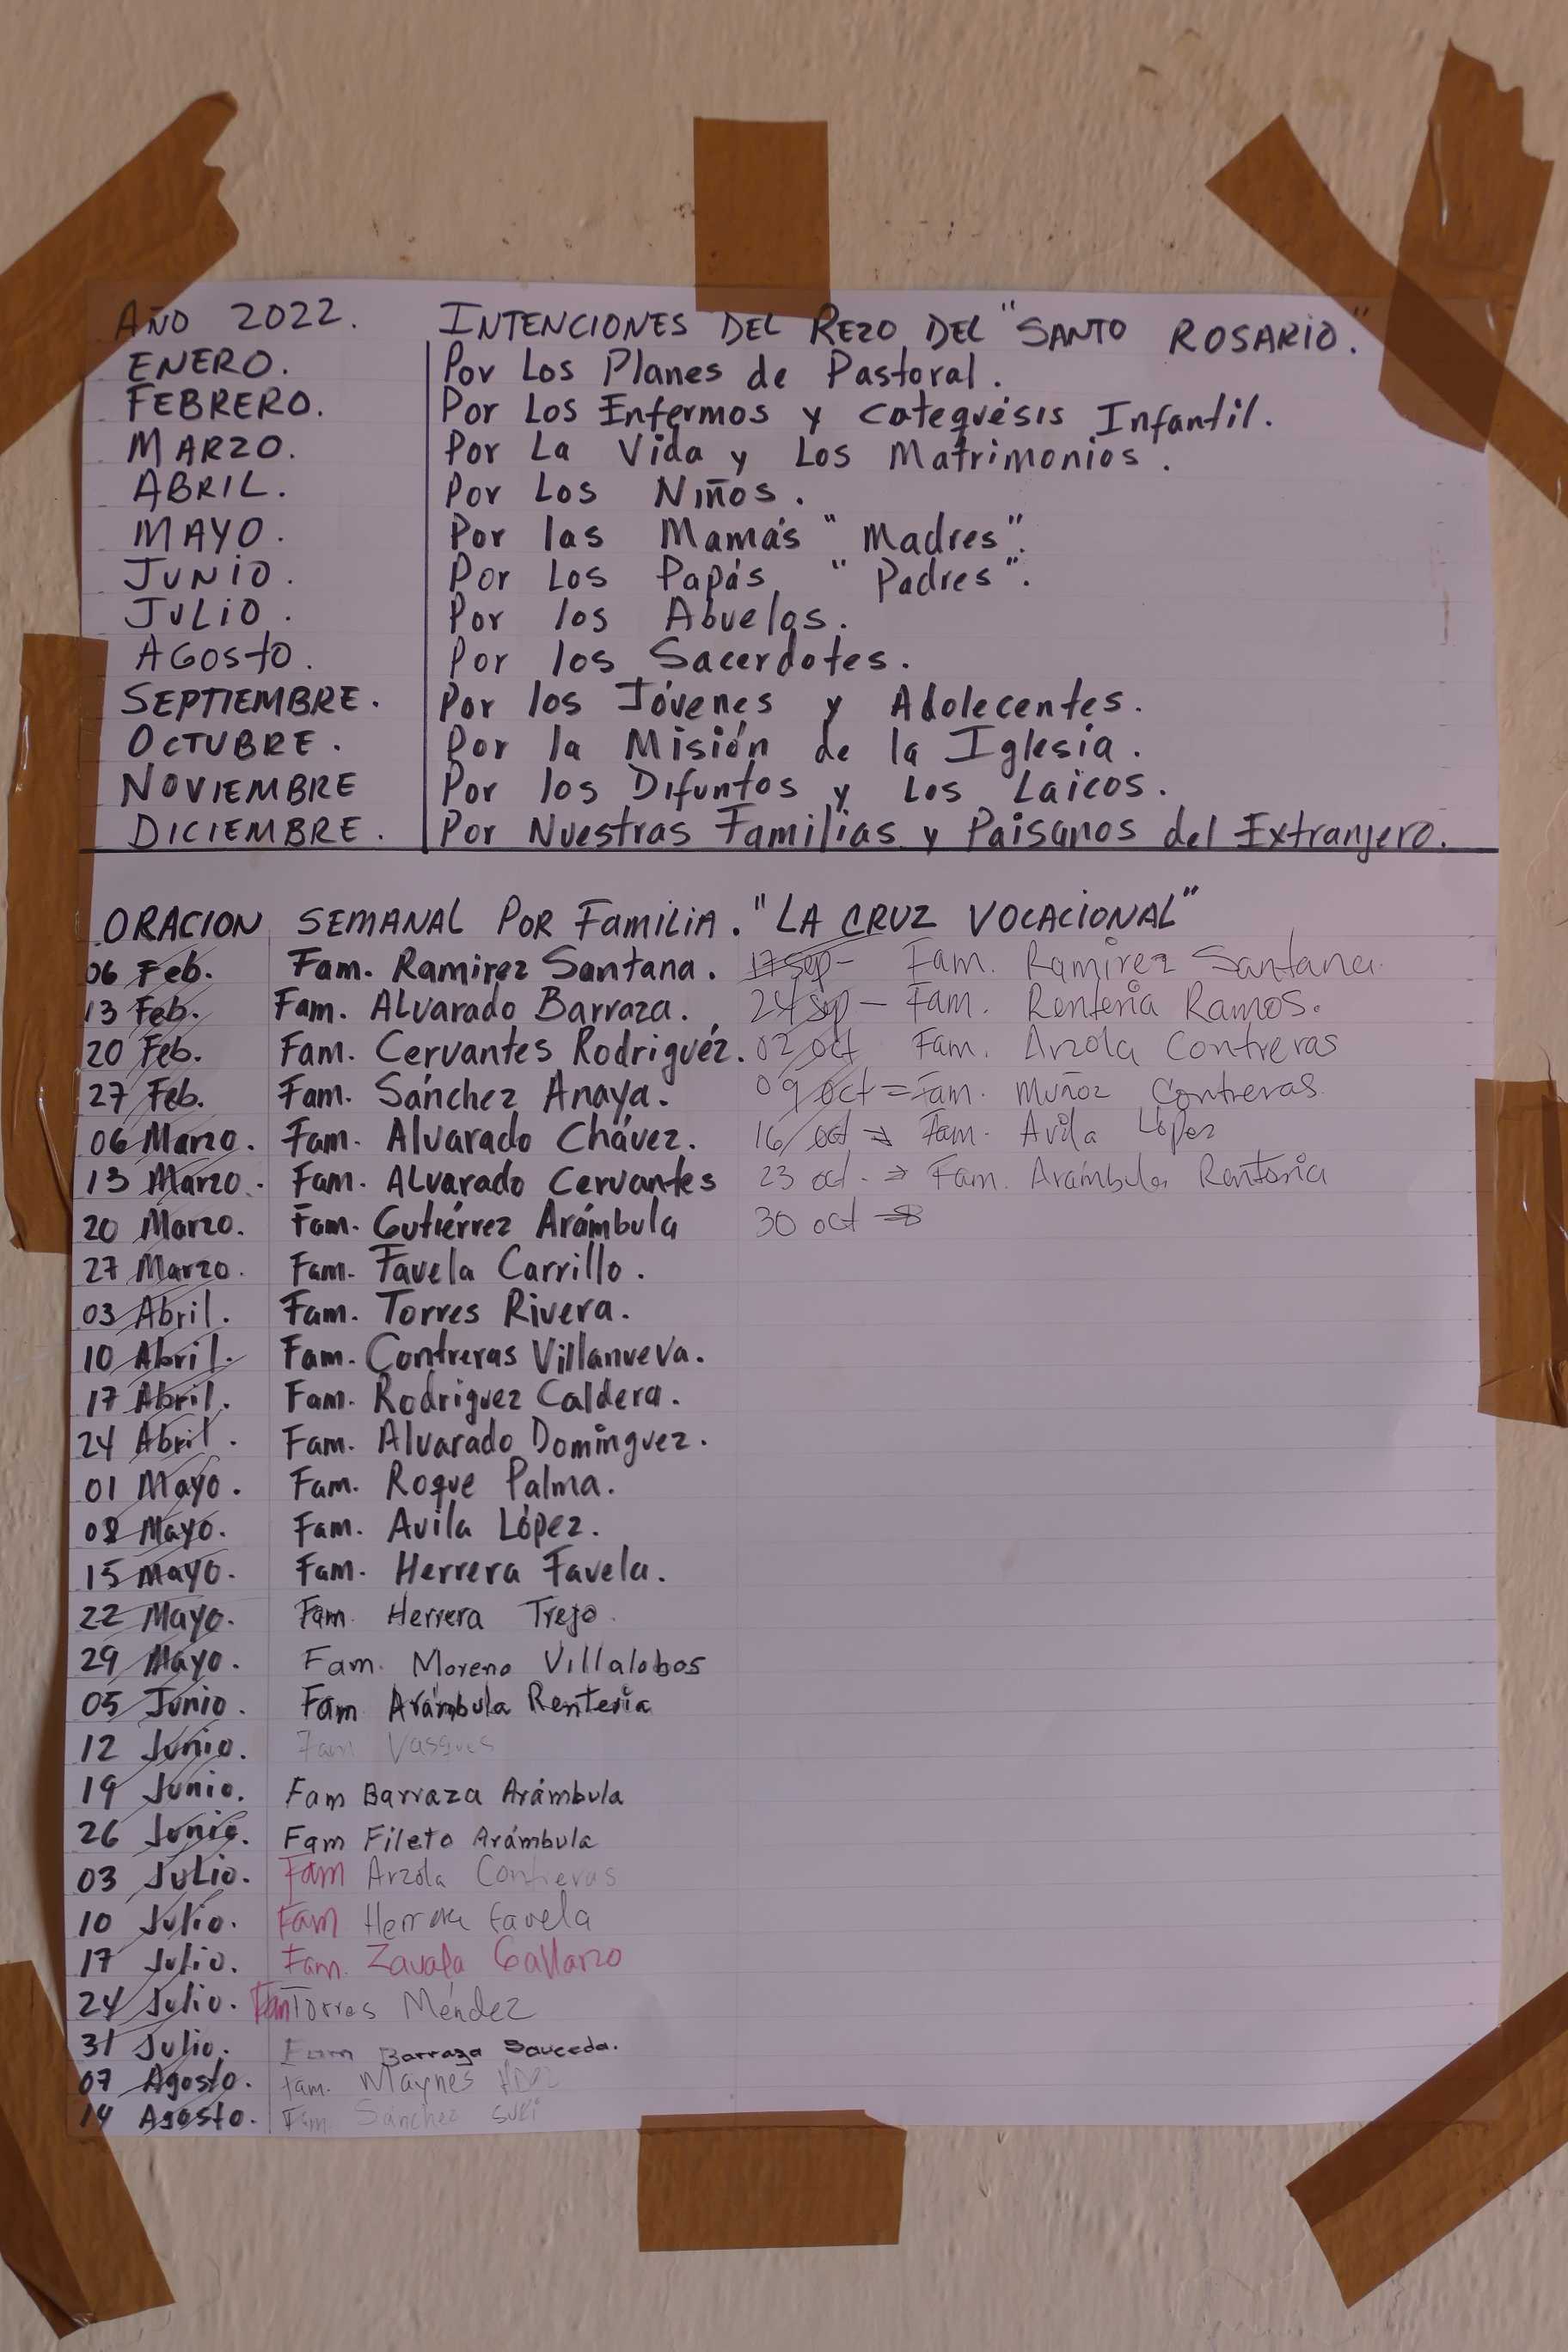 AÑO 2022. INTENCIONES DEL REZO DEL "SANTO ROSARIO."
ENERO. Por Los Planes de Pastoral.
FEBRERO. Por Los Enfermos y catequésis Infantil.
MARZO. Por La Vida y Los Matrimonios.
ABRIL. Por Los Niños.
MAYO. Por las Mamás "Madres".
JUNIO. Por Los Papás "Padres".
JULIO. Por los Abuelos.
AGOSTO. Por los Sacerdotes.
SEPTIEMBRE. Por los Jóvenes y Adolecentes.
OCTUBRE. Por la Misión de la Iglesia.
NOVIEMBRE Por los Difuntos y Los Laicos.
DICIEMBRE. Por Nuestras Familias y Paisanos del Extranjero.
ORACION SEMANAL POR FAMILIA. "LA CRUZ VOCACIONAL"
06 Feb. Fam. Ramirez Santana. 17 sep - Fam. Ramirez Santana.
13 Feb. Fam. ALvarado Barraza. 24 sep - Fam. Renteria Ramos.
20 Feb. Fam. Cervantes Rodriguéz. 02 oct Fam. Arzola Contreras
27 Feb. Fam. Sánchez Anaya. 09 oct = Fam. Muñoz Contreras
06 Marzo. Fam. Alvarado Chávez. 16 oct → Fam. Avila López
13 Marzo. Fam. ALvarado Cervantes 23 oct. → Fam. Arámbula Rentería
20 Marzo. Fam. Gutiérrez Arámbula 30 oct →
27 Marzo. Fam. Favela Carrillo.
03 Abril. Fam. Torres Rivera.
10 Abril. Fam. Contreras Villanueva.
17 Abril. Fam. Rodriguez Caldera.
24 Abril. Fam. Alvarado Dominguez.
01 Mayo. Fam. Roque Palma.
08 Mayo. Fam. Avila López.
15 mayo. Fam. Herrera Favela.
22 Mayo. Fam. Herrera Trejo.
29 Mayo. Fam. Moreno Villalobos
05 Junio. Fam Arámbula Renteria
12 Junio. Fam Vasques
19 Junio. Fam Barraza Arámbula
26 Junio. Fam Fileto Arámbula
03 Julio. Fam Arzola Contreras
10 Julio. Fam Herrera favela
17 Julio. Fam. Zavala Gallarzo
24 Julio. Fam Torres Méndez
31 Julio. Fam Barraza Sauceda.
07 Agosto. Fam. Maynes
14 Agosto. Fam. Sánchez